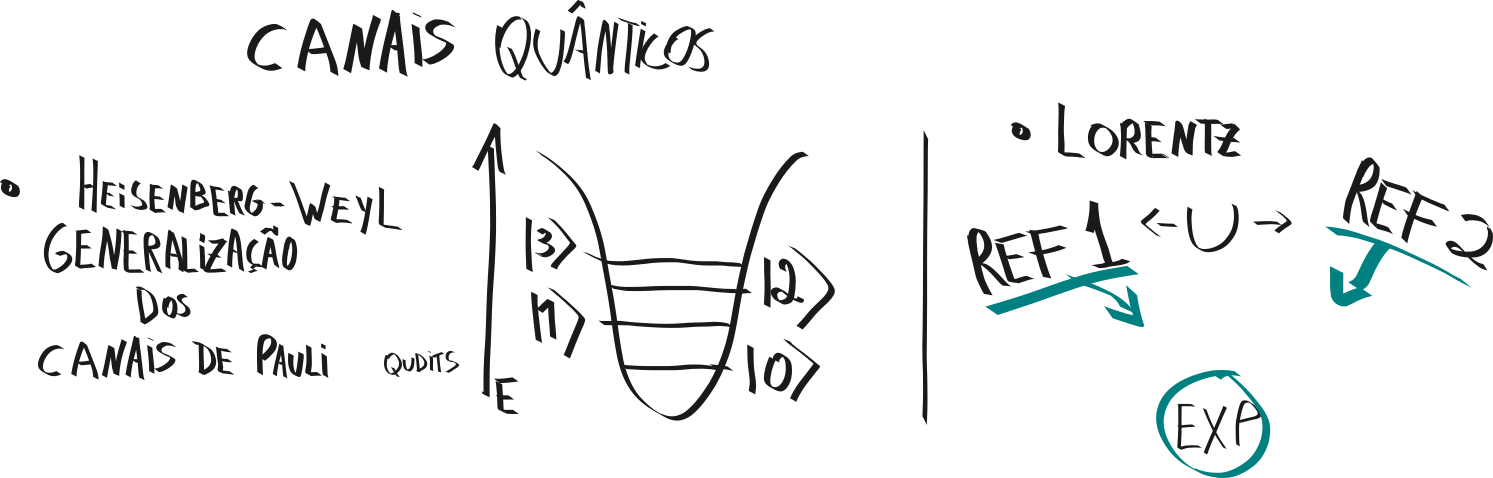 CANAIS QUÂNTICOS
• HEISENBERG-WEYL
GENERALIZAÇÃO
DOS
CANAIS DE PAULI
QUDITS
E
|3⟩
|1⟩
|2⟩
|0⟩
• LORENTZ
REF 1 ← U → REF 2
EXP